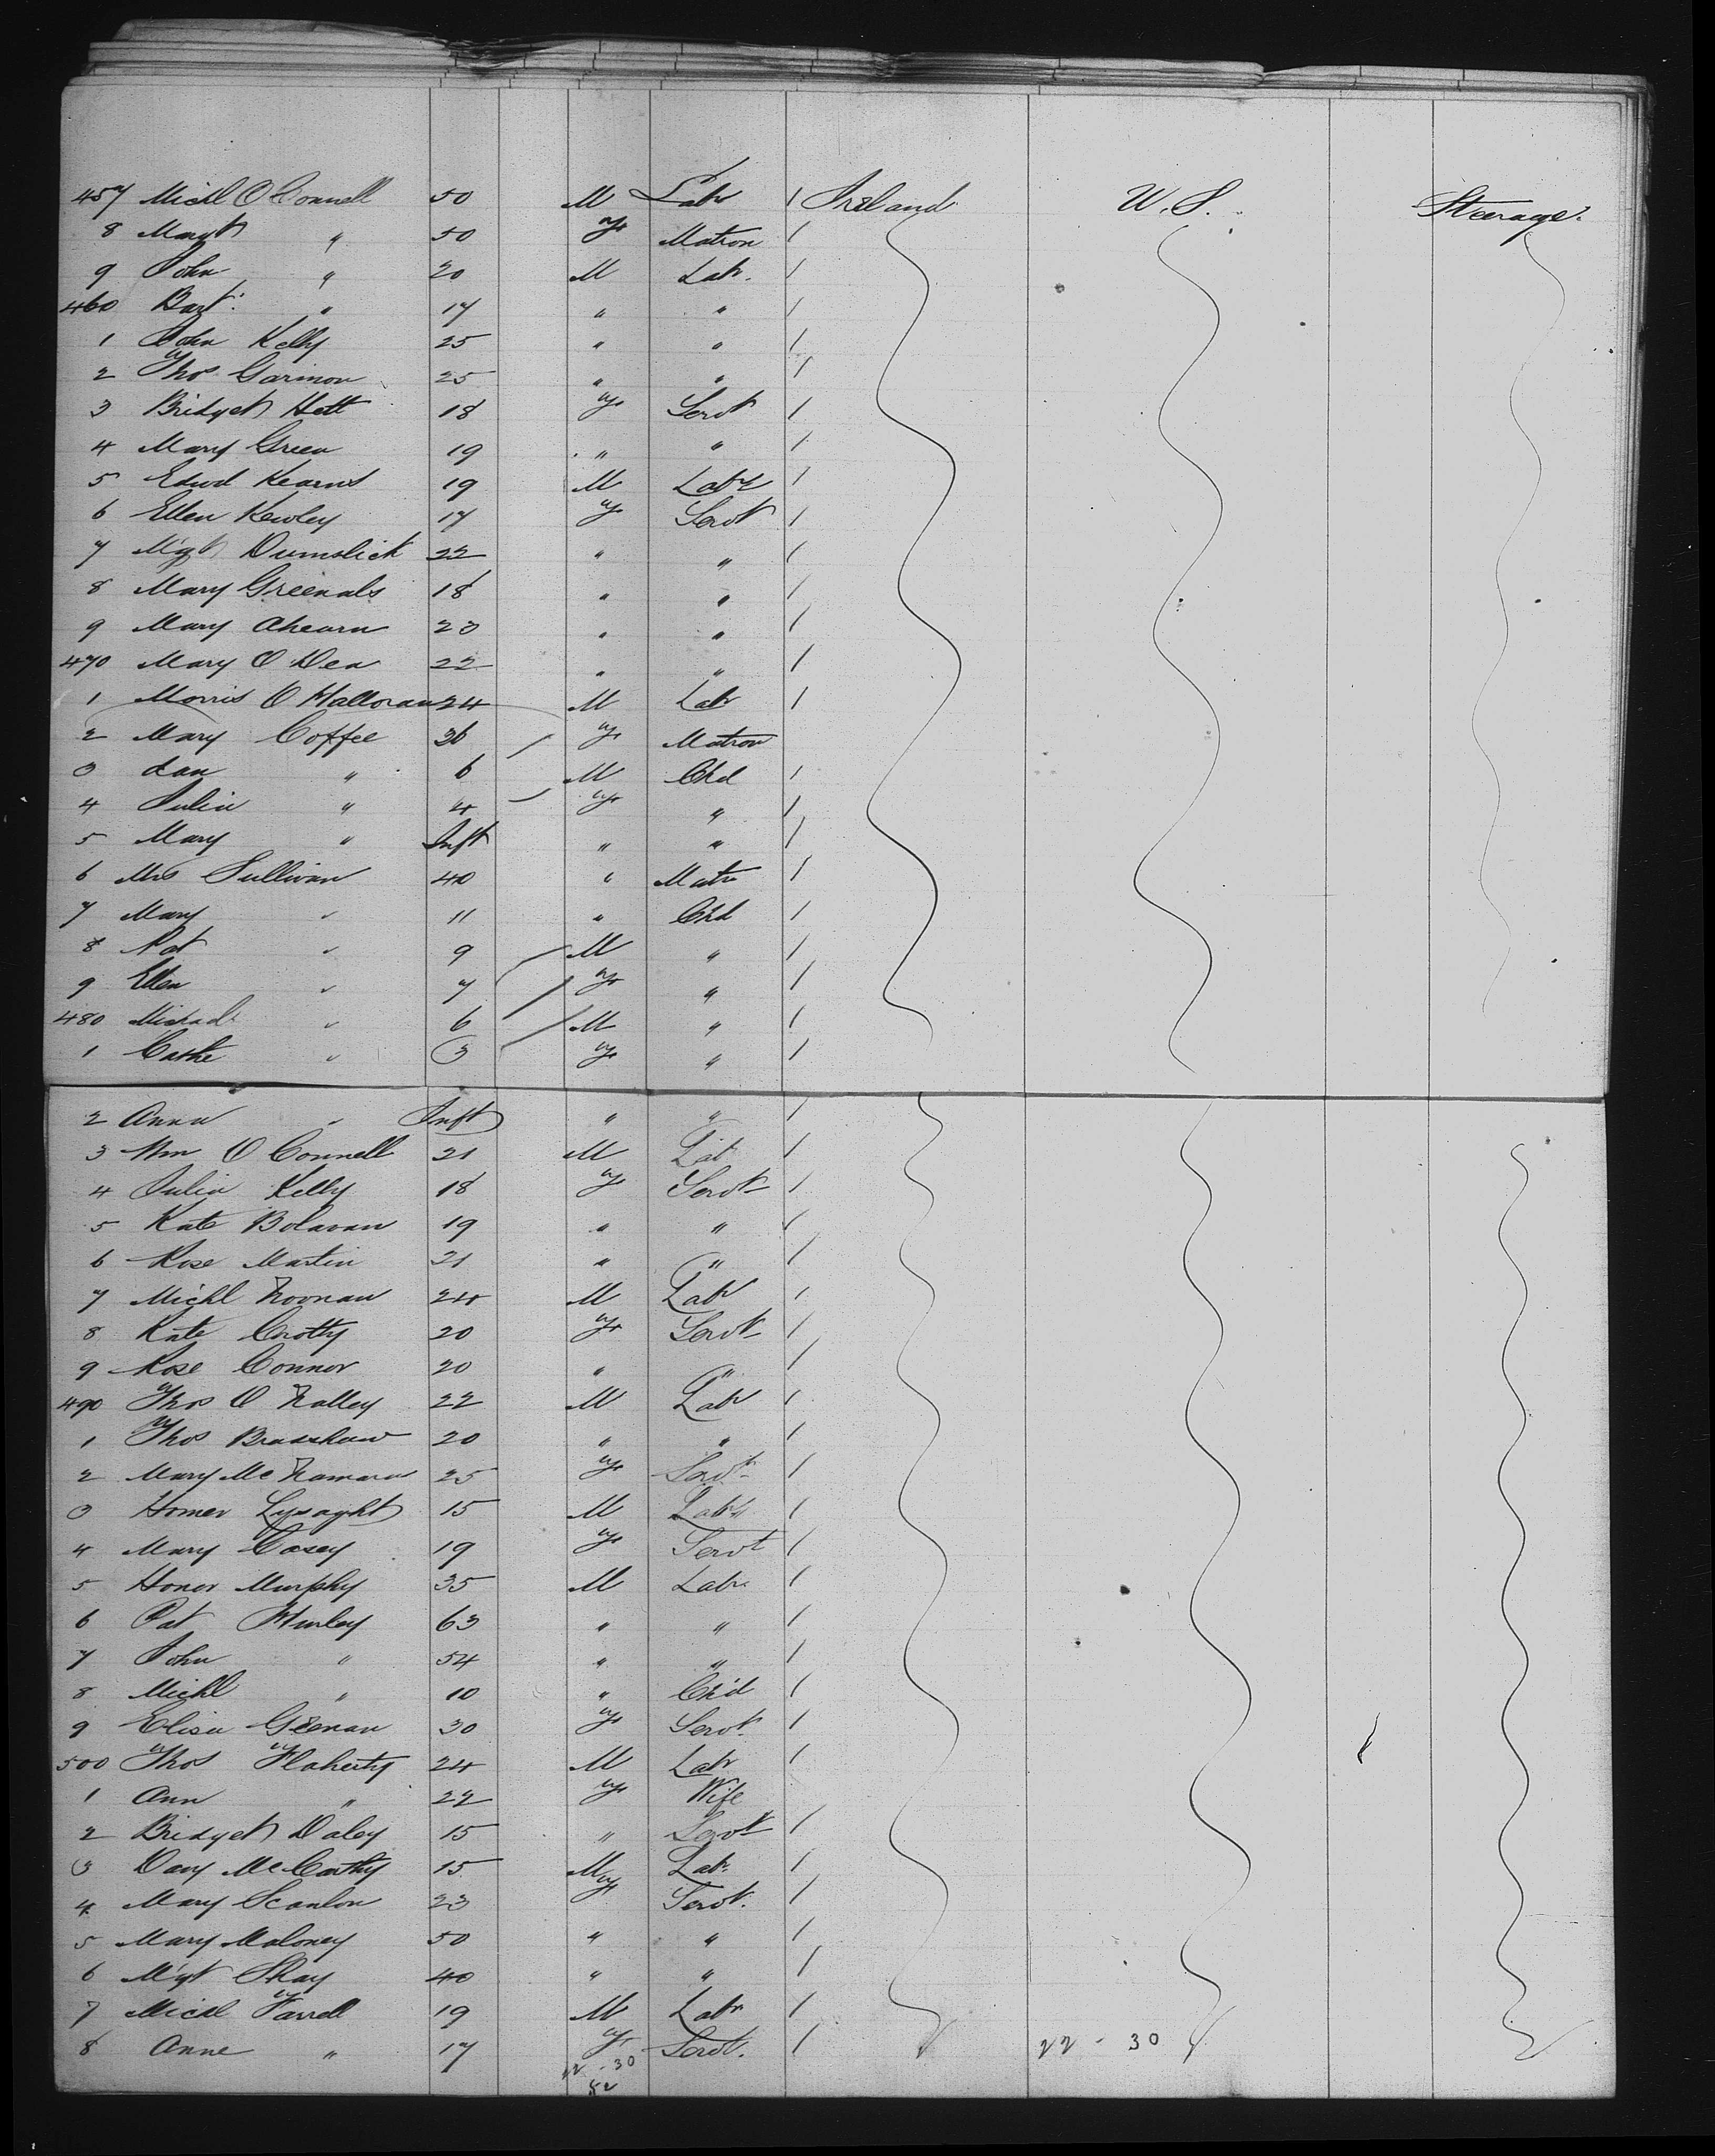 457 Michl O Connell 50 M Labr 1 Ireland U.S. Steerage.
8 Margt " 50 F Matron 1
9 John " 20 M Lab. 1
460 Bart: " 17 " " 1
1 John Kelly 25 " " 1
2 Thos Garmon 25 " " 1
3 Bridget Hett 18 F Servt 1
4 Mary Green 19 " " 1
5 Edwd Kearns 19 M Labr 1
6 Ellen Kewley 17 F Servt 1
7 Mgt Dumslick 22 " " 1
8 Mary Greenals 18 " " 1
9 Mary Ahearn 23 " " 1
470 Mary O Dea 22 " " 1
1 Morris O Halloran 24 M Labr 1
2 Mary Coffee 36 / F Matron
3 Dan " 6 M Chd 1
4 Julia " 4 F " 1
5 Mary " Inft " " 1
6 Mrs Sullivan 40 " Matr 1
7 Mary " 11 " Chd 1
8 Pat " 9 M " 1
9 Ellen " 7 F " 1
480 Michael " 6 M " 1
1 Cathe " 3 F " 1
2 Anna " Inft " " 1
3 Wm O Connell 21 M Lab 1
4 Julia Kelly 18 F Servt 1
5 Kate Bolavan 19 " " 1
6 Rose Martin 21 " " 1
7 Michl Noonan 24 M Labr 1
8 Kate Crotty 20 F Servt 1
9 Rose Connor 20 " " 1
490 Thos O Nalley 22 M Labr 1
1 Thos Bradshaw 20 " " 1
2 Mary McNamara 25 F Servt 1
3 Homer Lysaght 15 M Labr 1
4 Mary Casey 19 F Servt 1
5 Honor Murphy 35 M Labr 1
6 Pat Hurley 63 " " 1
7 John " 54 " " 1
8 Michl " 10 " Chd 1
9 Elisa Geenan 30 F Servt. 1
500 Thos Flaherty 24 M Labr 1
1 Ann " 22 F Wife
2 Bridget Daley 15 " Servt 1
3 Dany McCarthy 15 M Lab. 1
4 Mary Scanlon 23 F Servt. 1
5 Mary Maloney 50 " " 1
6 Mgt Shay 40 " " 1
7 Michl Farrell 19 M Labr 1
8 Anne " 17 F Servt. 1 22 - 30
22 - 30
52